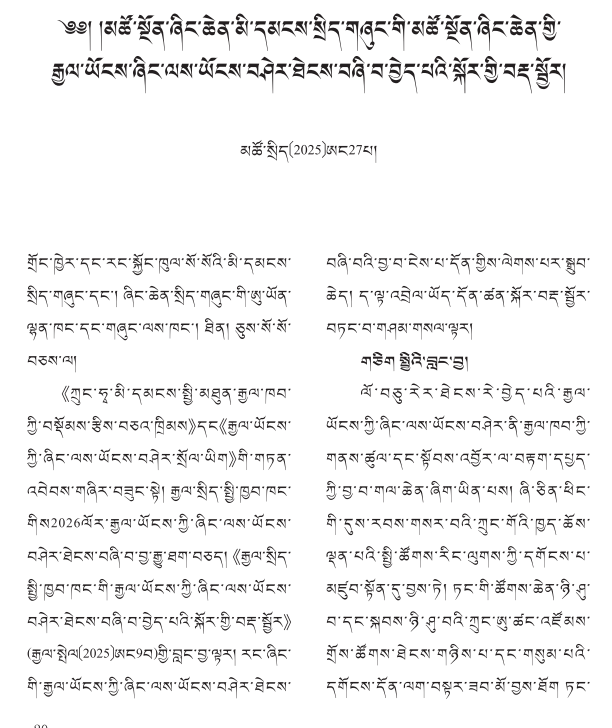 ༄༅། །མཚོ་སྔོན་ཞིང་ཆེན་མི་དམངས་སྲིད་གཞུང་གི་མཚོ་སྔོན་ཞིང་ཆེན་གྱི་
རྒྱལ་ཡོངས་ཞིང་ལས་ཡོངས་བཤེར་ཐེངས་བཞི་བ་བྱེད་པའི་སྐོར་གྱི་བརྡ་སྦྱོར།
མཚོ་སྲིད(2025)ཨང27པ།
གྲོང་ཁྱེར་དང་རང་སྐྱོང་ཁུལ་སོ་སོའི་མི་དམངས་
སྲིད་གཞུང་དང་། ཞིང་ཆེན་སྲིད་གཞུང་གི་ཨུ་ཡོན་
ལྷན་ཁང་དང་གཞུང་ལས་ཁང་། ཐིན། ཅུས་སོ་སོ་
བཅས་ལ།
《ཀྲུང་ཧྭ་མི་དམངས་སྤྱི་མཐུན་རྒྱལ་ཁབ་
ཀྱི་བསྡོམས་རྩིས་བཅའ་ཁྲིམས》དང《རྒྱལ་ཡོངས་
ཀྱི་ཞིང་ལས་ཡོངས་བཤེར་སྲོལ་ཡིག》གི་གཏན་
འབེབས་གཞིར་བཟུང་སྟེ། རྒྱལ་སྲིད་སྤྱི་ཁྱབ་ཁང་
གིས2026ལོར་རྒྱལ་ཡོངས་ཀྱི་ཞིང་ལས་ཡོངས་
བཤེར་ཐེངས་བཞི་བ་བྱ་རྒྱུ་ཐག་བཅད། 《རྒྱལ་སྲིད་
སྤྱི་ཁྱབ་ཁང་གི་རྒྱལ་ཡོངས་ཀྱི་ཞིང་ལས་ཡོངས་
བཤེར་ཐེངས་བཞི་བ་བྱེད་པའི་སྐོར་གྱི་བརྡ་སྦྱོར》
(རྒྱལ་སྤེལ(2025)ཨང9བ)གྱི་བླང་བྱ་ལྟར། རང་ཞིང་
གི་རྒྱལ་ཡོངས་ཀྱི་ཞིང་ལས་ཡོངས་བཤེར་ཐེངས་
བཞི་བའི་བྱ་བ་ངེས་པ་དོན་གྱིས་ལེགས་པར་སྒྲུབ་
ཆེད། ད་ལྟ་འབྲེལ་ཡོད་དོན་ཚན་སྐོར་བརྡ་སྦྱོར་
བཏང་བ་གཤམ་གསལ་ལྟར།
གཅིག སྤྱིའི་བླང་བྱ།
ལོ་བཅུ་རེར་ཐེངས་རེ་བྱེད་པའི་རྒྱལ་
ཡོངས་ཀྱི་ཞིང་ལས་ཡོངས་བཤེར་ནི་རྒྱལ་ཁབ་ཀྱི་
གནས་ཚུལ་དང་སྟོབས་འབྱོར་ལ་བརྟག་དཔྱད་
ཀྱི་བྱ་བ་གལ་ཆེན་ཞིག་ཡིན་པས། ཞི་ཅིན་ཕིང་
གི་དུས་རབས་གསར་བའི་ཀྲུང་གོའི་ཁྱད་ཆོས་
ལྡན་པའི་སྤྱི་ཚོགས་རིང་ལུགས་ཀྱི་དགོངས་པ་
མཛུབ་སྟོན་དུ་བྱས་ཏེ། ཏང་གི་ཚོགས་ཆེན་ཉི་ཤུ་
བ་དང་སྐབས་ཉི་ཤུ་བའི་ཀྲུང་ཨུ་ཚང་འཛོམས་
གྲོས་ཚོགས་ཐེངས་གཉིས་པ་དང་གསུམ་པའི་
དགོངས་དོན་ལག་བསྟར་ཟབ་མོ་བྱས་ཐོག ཏང་